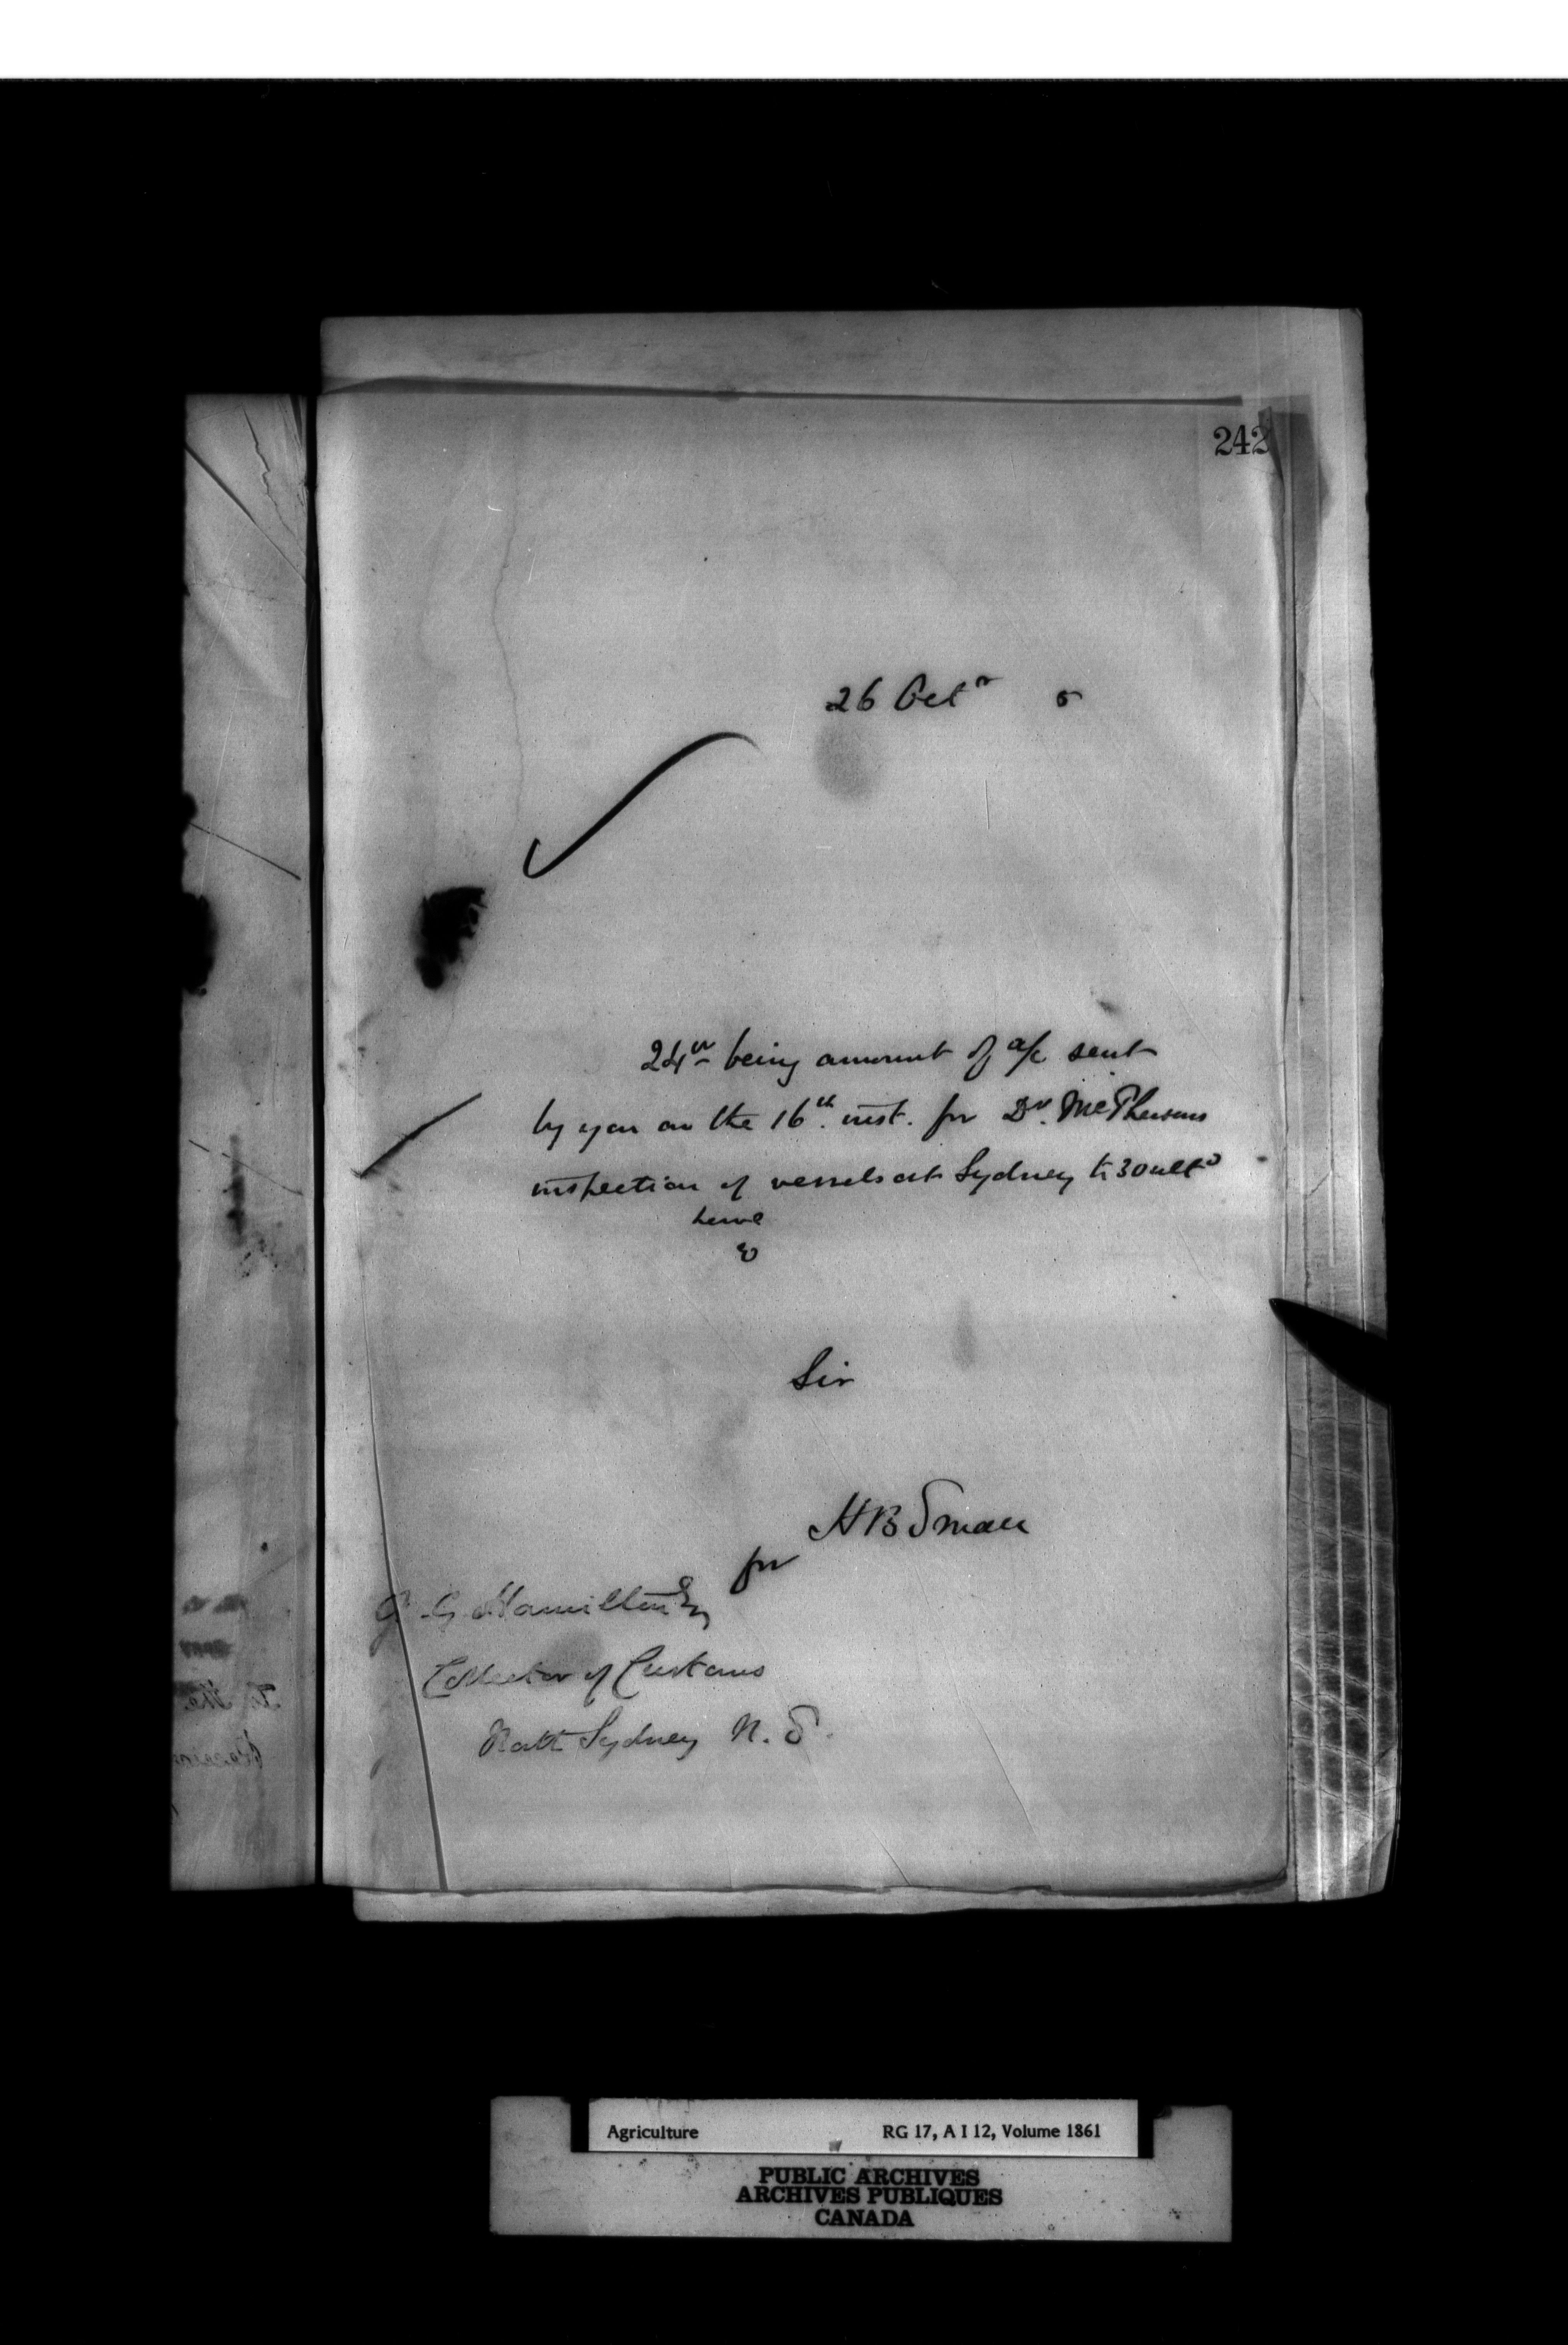 242
26 Octr 5
24 00 being amount of a/c sent
by you on the 16th. inst. for Dr. McPhersons
inspection of vessels at Sydney to 30 ulto
have
Sir
H B Small
for
J. G. Hamilton Esq
Collector of Customs
North Sydney N. S.
Agriculture RG 17, A I 12, Volume 1861
PUBLIC ARCHIVES
ARCHIVES PUBLIQUES
CANADA